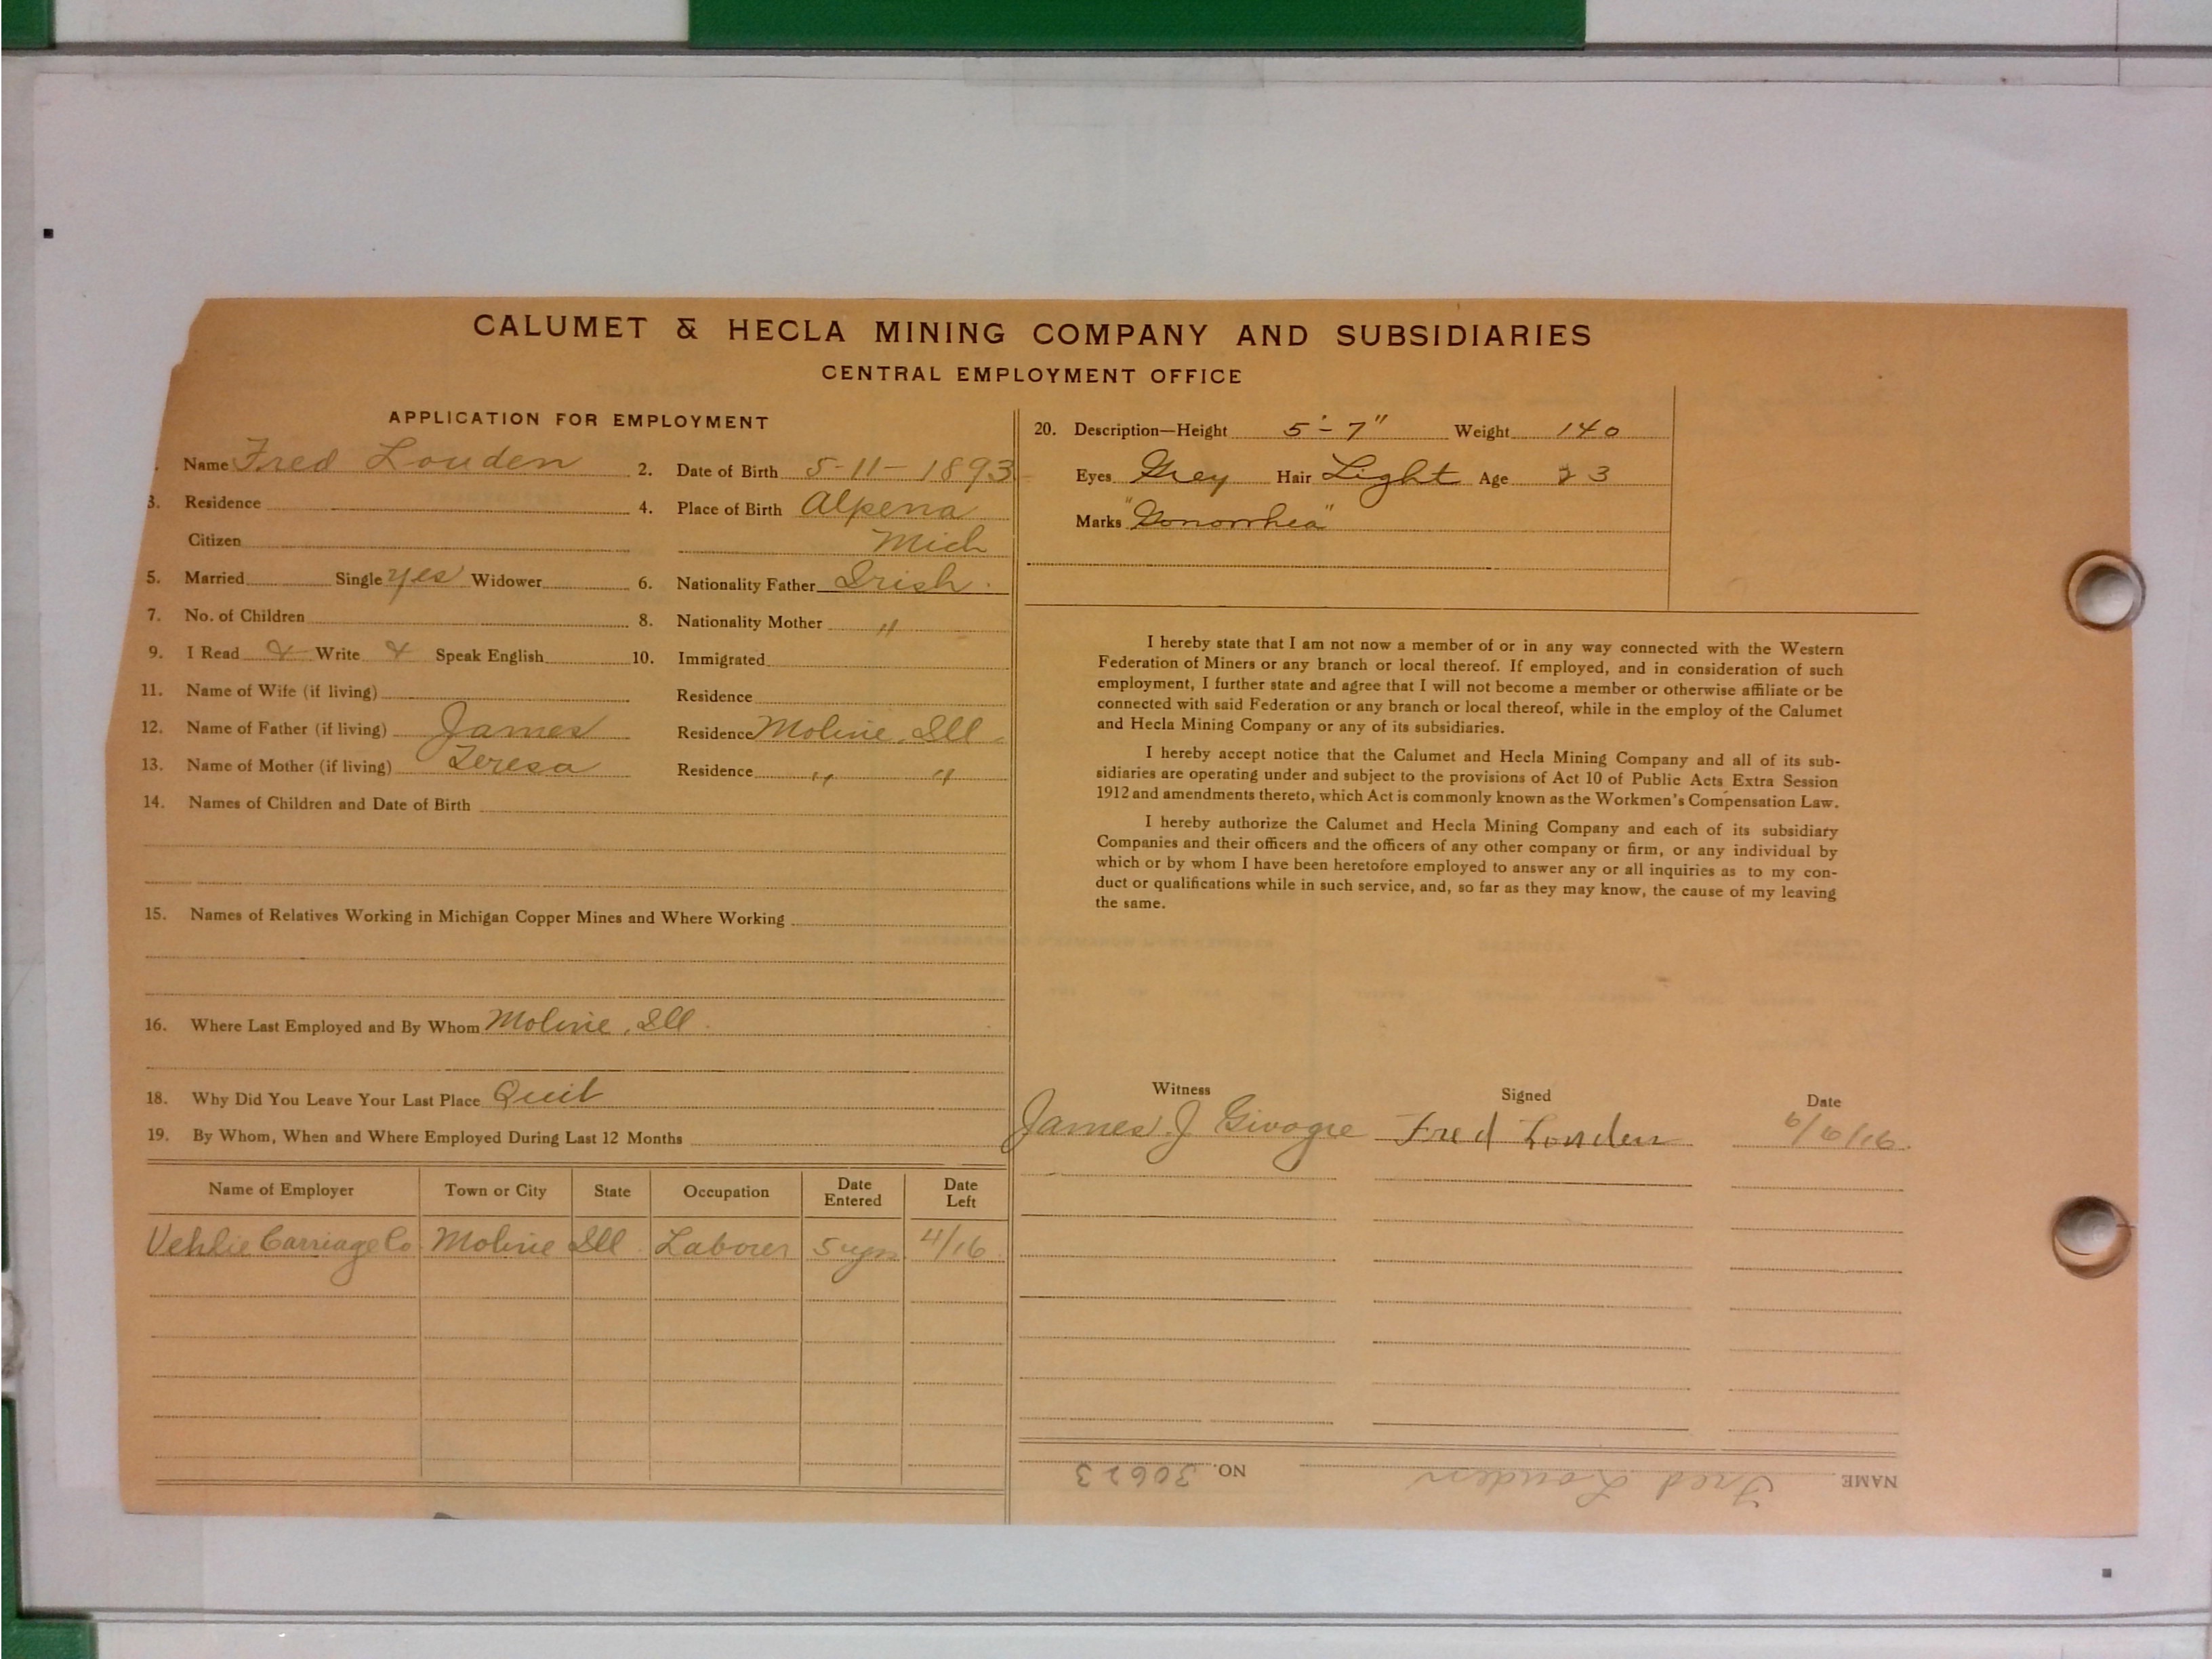 CALUMET & HECLA MINING COMPANY AND SUBSIDIARIES
CENTRAL EMPLOYMENT OFFICE
APPLICATION FOR EMPLOYMENT
Name Fred Louden 2. Date of Birth 5-11-1893
3. Residence 4. Place of Birth Alpena
Citizen Mich
5. Married Single yes Widower 6. Nationality Father Irish.
7. No. of Children 8. Nationality Mother "
9. I Read & Write & Speak English 10. Immigrated
11. Name of Wife (if living) Residence
12. Name of Father (if living) James Residence Moline, Ill.
13. Name of Mother (if living) Teresa Residence " "
14. Names of Children and Date of Birth
15. Names of Relatives Working in Michigan Copper Mines and Where Working
16. Where Last Employed and By Whom Moline, Ill.
18. Why Did You Leave Your Last Place Quit
19. By Whom, When and Where Employed During Last 12 Months
Name of Employer Town or City State Occupation Date Entered Date Left
Carriage Co Moline Ill. Laborer 5 yrs. 4/16.
20. Description—Height 5'-7" Weight 140
Eyes Grey Hair Light Age 23
Marks "Gonorrhea"
I hereby state that I am not now a member of or in any way connected with the Western
Federation of Miners or any branch or local thereof. If employed, and in consideration of such
employment, I further state and agree that I will not become a member or otherwise affiliate or be
connected with said Federation or any branch or local thereof, while in the employ of the Calumet
and Hecla Mining Company or any of its subsidiaries.
I hereby accept notice that the Calumet and Hecla Mining Company and all of its sub-
sidiaries are operating under and subject to the provisions of Act 10 of Public Acts Extra Session
1912 and amendments thereto, which Act is commonly known as the Workmen's Compensation Law.
I hereby authorize the Calumet and Hecla Mining Company and each of its subsidiary
Companies and their officers and the officers of any other company or firm, or any individual by
which or by whom I have been heretofore employed to answer any or all inquiries as to my con-
duct or qualifications while in such service, and, so far as they may know, the cause of my leaving
the same.
Witness Signed Date
James J Fred Louden 6/6/16.
NAME Fred Louden NO. 30623